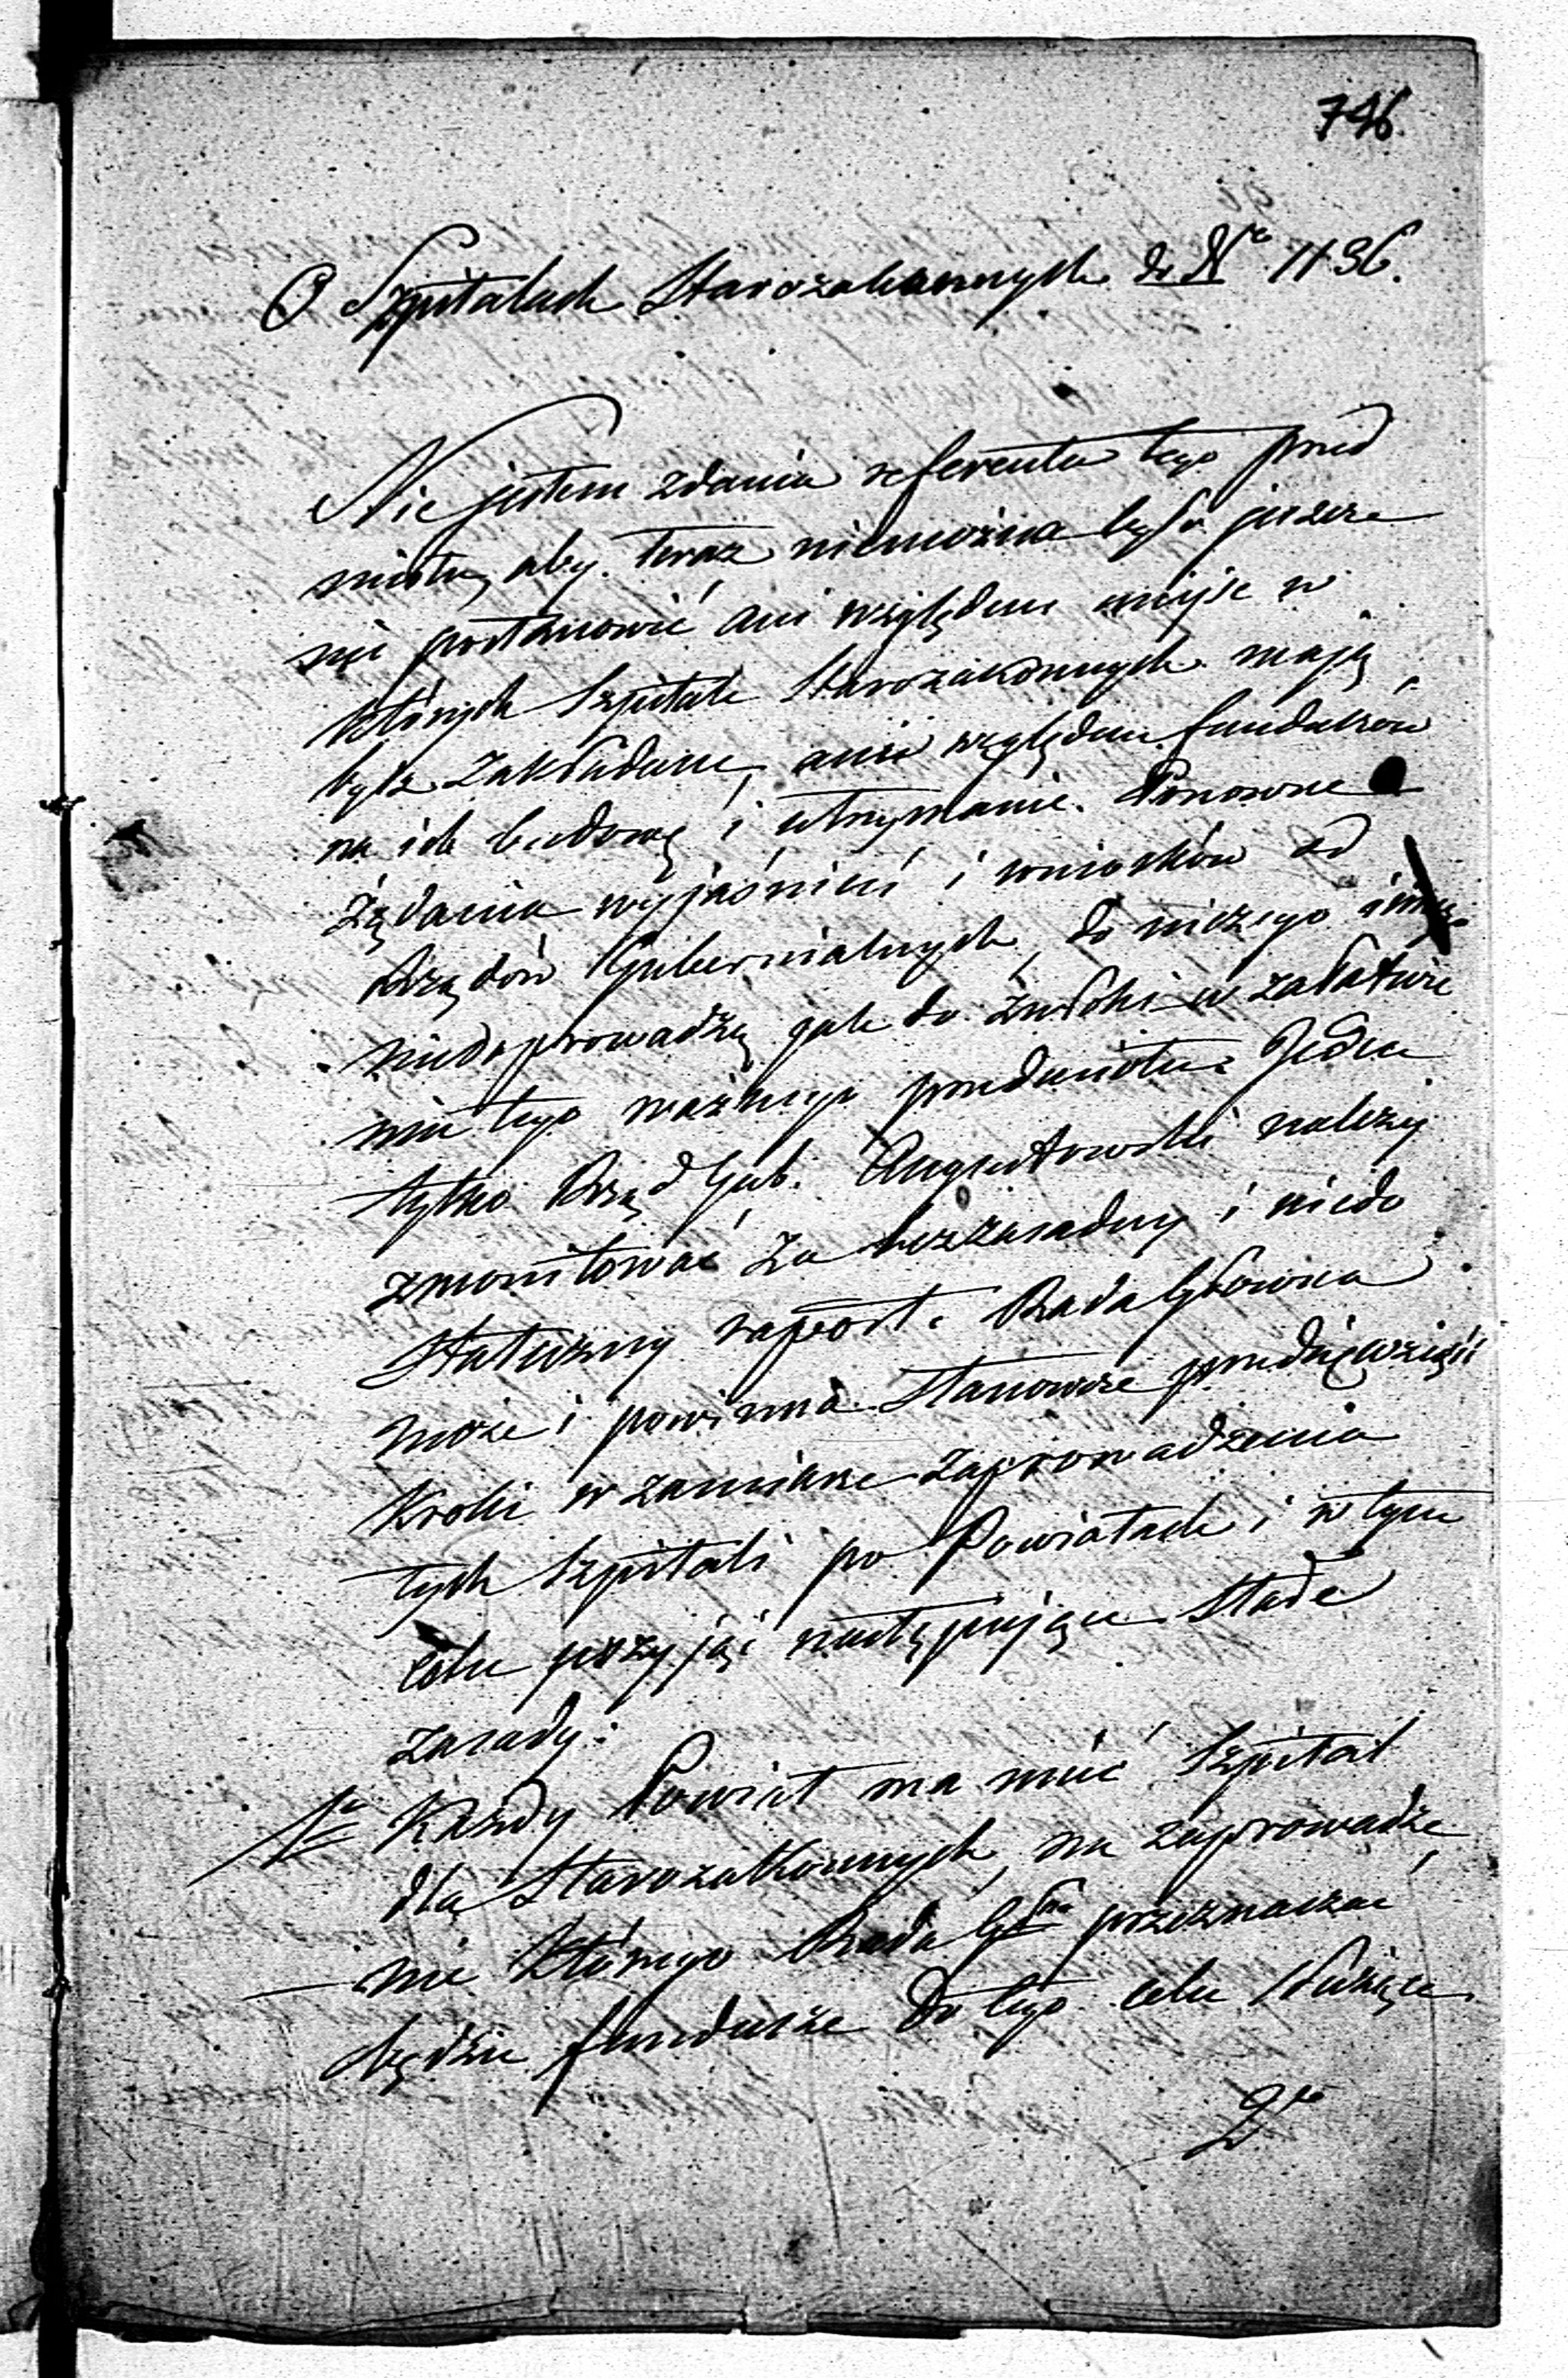 746.
O Szpitalach Starozakonnych do Nr 1136.
Nie jestem zdania referenta tego przed
miotu, aby teraz niemożna było jeszcze
nic postanowić ani względem miejsc w
których Szpitale Starozakonnych mają
być zakładane, ani względem funduszów
na ich budowę i utrzymanie. Ponowne
Żądania wyjaśnień i wniosków od
Rządów Gubernialnych, do niczego
niedoprowadzą jak do zwłoki w załatwie
niu tego ważnego przedmiotu. Jeden
tylko Rząd Gub. Augustowski należy
zmonitować za bezzasadny i niedo
stateczny raport. Rada Główna
może i powinna stanowcze przedsięwziąść
Kroki w zamiarze zaprowadzenia
tych Szpitali po Powiatach i w tym
celu przyjąć następujące stałe
zasady:
1o Każdy Powiat ma mieć Szpital
dla Starozakonnych, na zaprowadze
nie którego Rada Głna przeznaczać
będzie fundusze do tego celu służące
2o